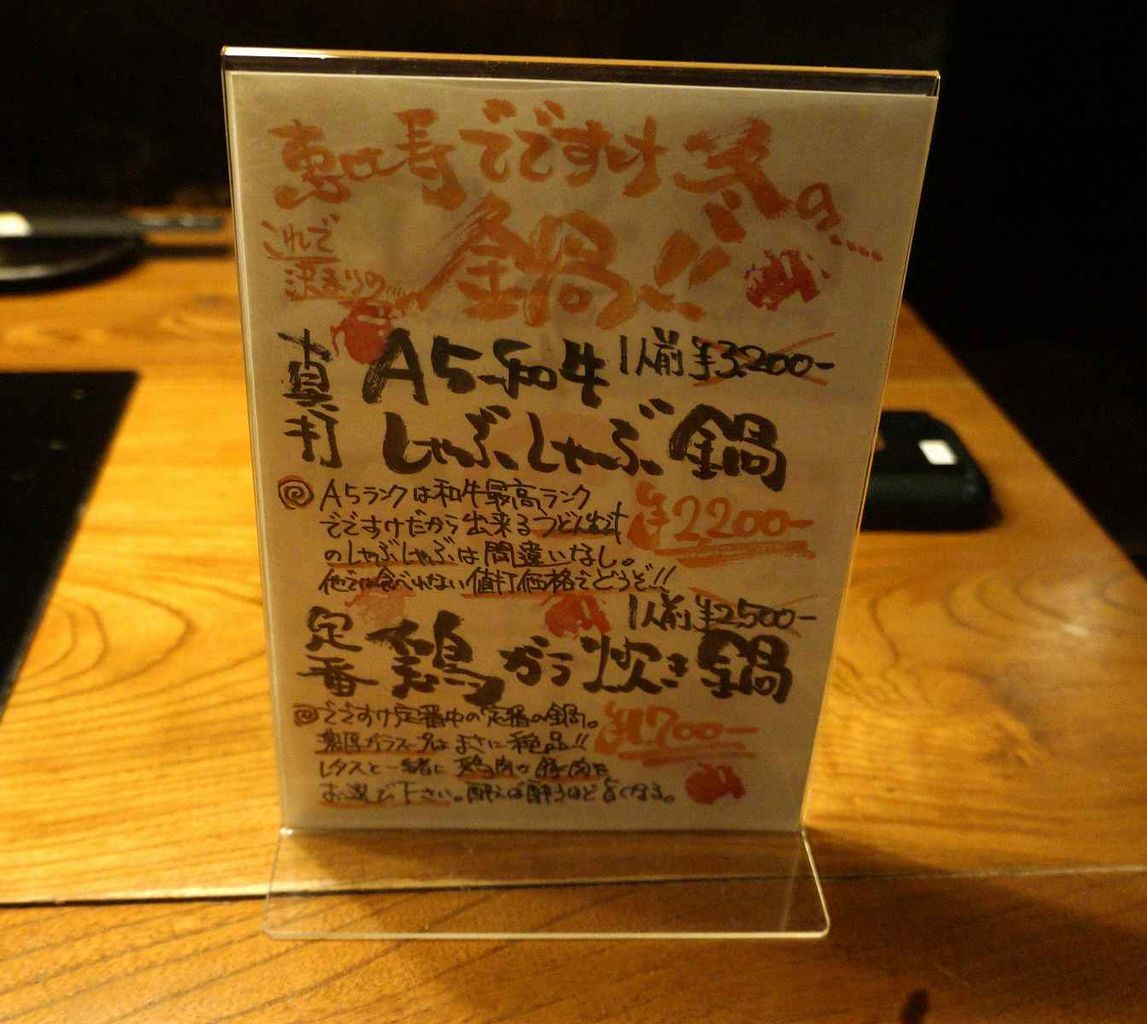 恵比寿でですけ冬の....
これで
決まりの....
鍋!!
真打 A5和牛 1人前 ¥3,200-
しゃぶしゃぶ鍋
A5ランクは和牛最高ランク
でですけだから出来るうどん出汁
のしゃぶしゃぶは間違いなし。
¥2200-
他では食べれない値打価格でどうぞ!!
1人前 ¥2500-
定番 鶏ガラ炊き鍋
でですけ定番中の定番の鍋。
¥1700-
鶏ガラスープはまさに絶品!!
レタスと一緒に鶏肉か豚肉を
お選び下さい。酔えば酔うほど旨くなる。